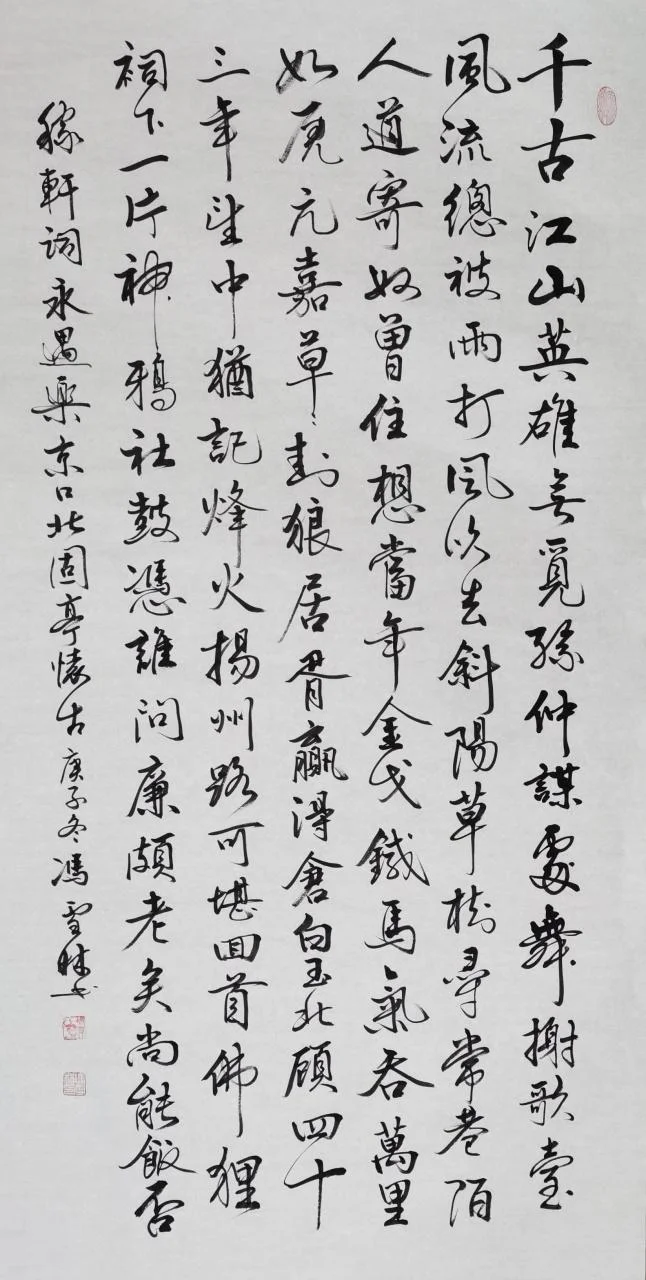 千古江山英雄無覓孫仲謀處舞榭歌臺
風流總被雨打風吹去斜陽草樹尋常巷陌
人道寄奴曾住想當年金戈鐵馬氣吞萬里
如虎元嘉草草封狼居胥贏得倉白玉北顧四十
三年望中猶記烽火揚州路可堪回首佛狸
祠下一片神鴉社鼓憑誰問廉頗老矣尚能飯否
稼軒詞永遇樂京口北固亭懷古庚子冬馮雪林書